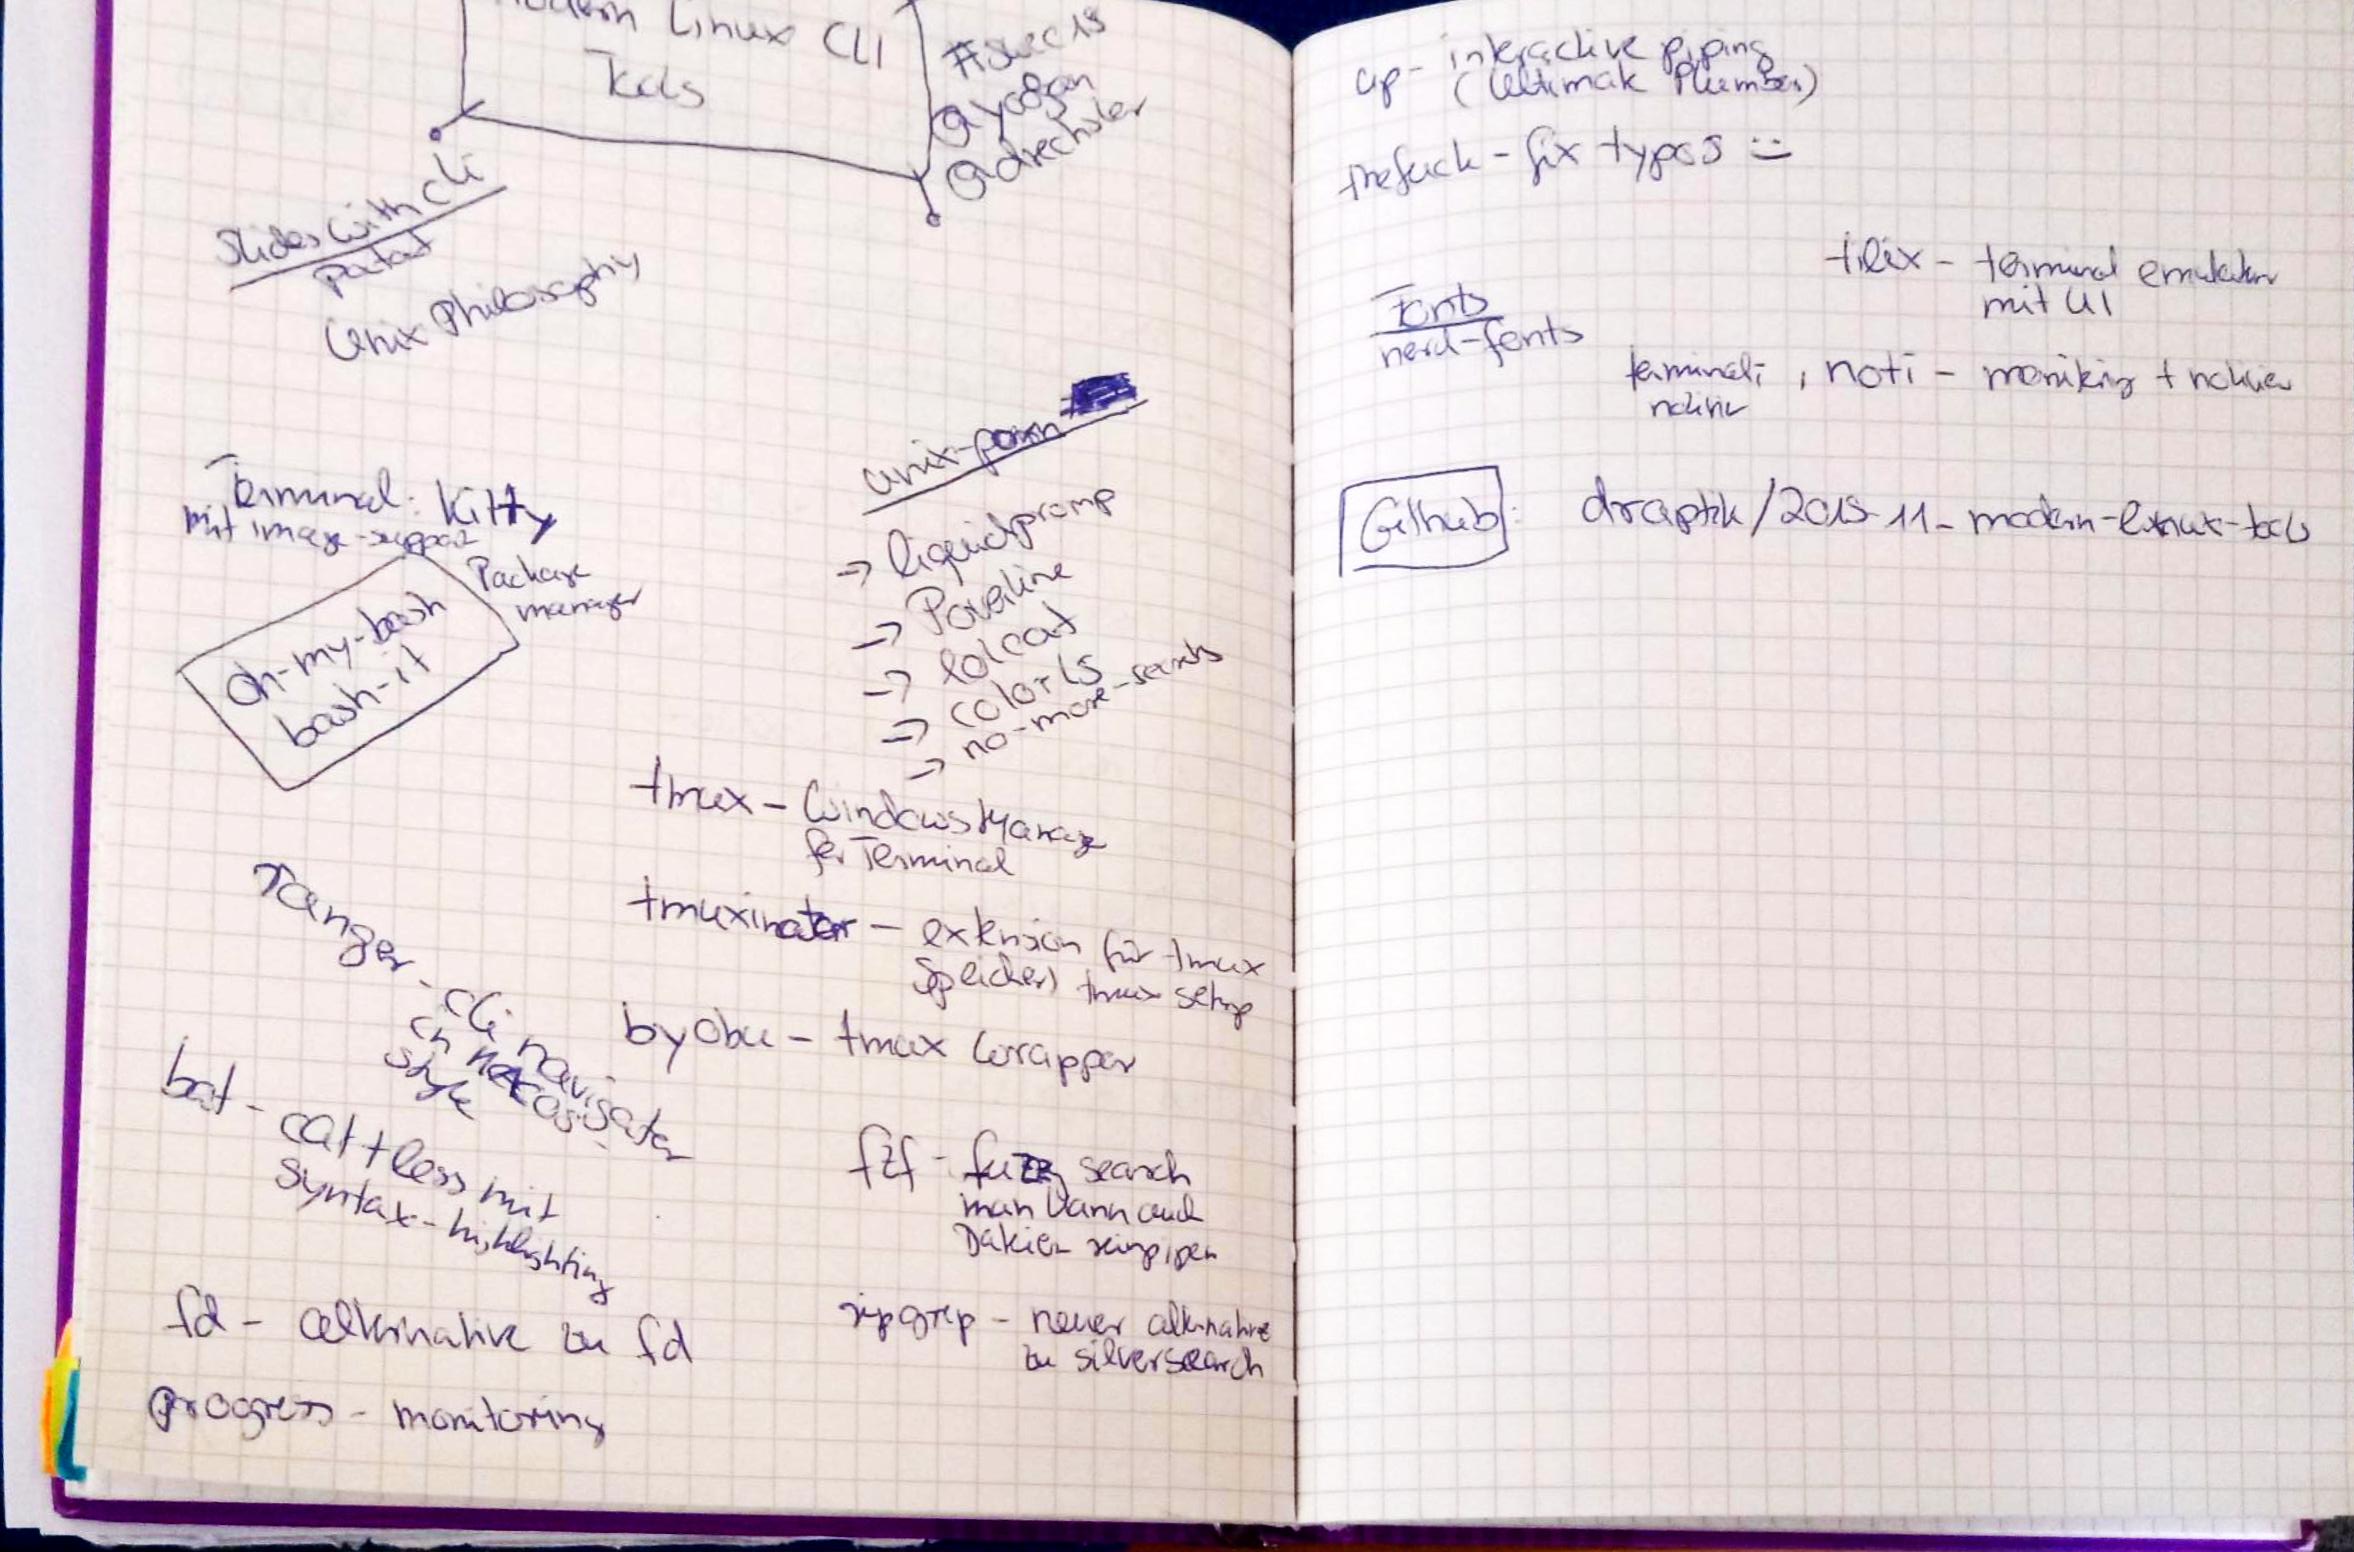 Modern Linux CLI
Tools
@yoogan
@drechsler
Slides with cli
patat
Unix Philosophy
Terminal: Kitty
mit image-support
Package
manager
oh-my-bash
bash-it
unix-porn
→ liquidpromp
→ Powerline
→ lolcat
→ colorls
→ no-more-secrets
tmux - Windows Manager
for Terminal
tmuxinator - extension für tmux
speichert tmux setup
byobu - tmux wrapper
ranger - cli navigator
style
bat - cat + less mit
syntax-highlighting
fd - alternative zu fd
progress - monitoring
fzf - fuzzy search
man kann auch
Dateien reinpipen
ripgrep - neuer alternative
zu silversearch
up - interactive piping
(Ultimate Plumber)
thefuck - fix typos :)
tilix - terminal emulator
mit UI
Fonts
nerd-fonts
noti -
Github: draptik/2018-11-modern-linux-tools